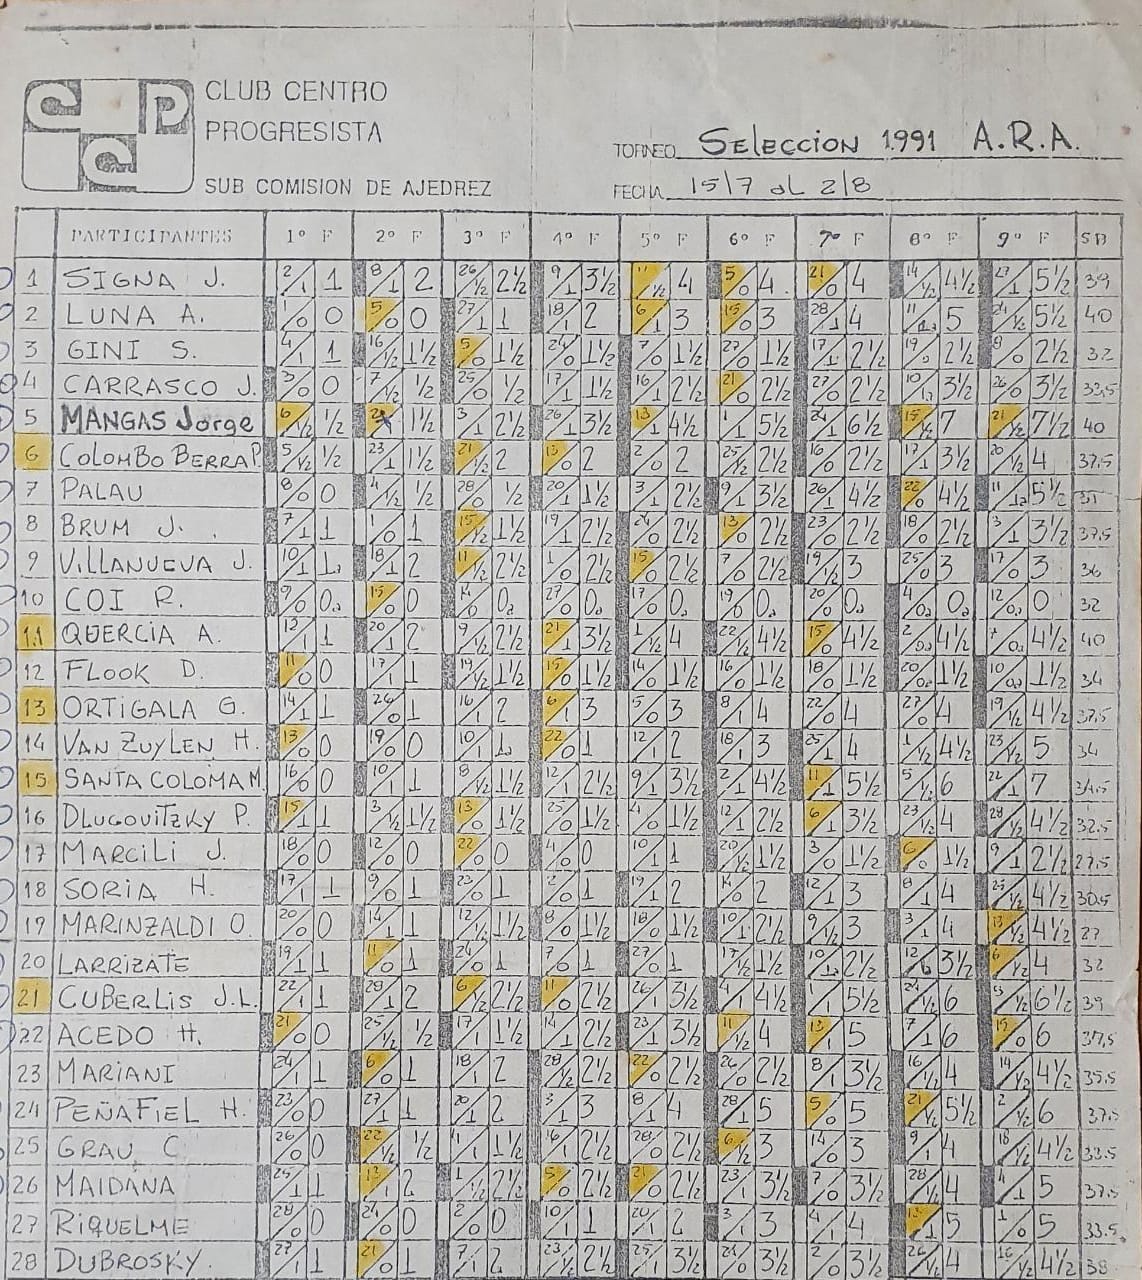 CCPC
CLUB CENTRO
PROGRESISTA
SUB COMISION DE AJEDREZ
TORNEO Seleccion 1991 A.R.A.
FECHA 15/7 al 2/8
PARTICIPANTES 1º F 2º F 3º F 4º F 5º F 6º F 7º F 8º F 9º F SB
1 SIGNA J. 2/1 1 8/1 2 26/½ 2½ 9/1 3½ 11/½ 4 5/0 4 21/0 4 14/½ 4½ 27/1 5½ 39
2 LUNA A. 1/0 0 5/0 0 27/1 1 18/1 2 6/1 3 15/0 3 28/1 4 11/1 5 24/½ 5½ 40
3 GINI S. 4/1 1 16/½ 1½ 5/0 1½ 24/0 1½ 7/0 1½ 27/0 1½ 17/1 2½ 19/0 2½ 8/0 2½ 32
4 CARRASCO J. 3/0 0 7/½ ½ 25/0 ½ 17/1 1½ 16/1 2½ 21/0 2½ 27/0 2½ 10/1 3½ 26/0 3½ 33,5
5 MANGAS Jorge 6/½ ½ 2/1 1½ 3/1 2½ 26/1 3½ 13/1 4½ 1/1 5½ 24/1 6½ 15/½ 7 21/½ 7½ 40
6 COLOMBO BERRA P. 5/½ ½ 23/1 1½ 21/½ 2 13/0 2 2/0 2 25/½ 2½ 16/0 2½ 17/1 3½ 20/½ 4 37.5
7 PALAU 8/0 0 4/½ ½ 28/0 ½ 20/1 1½ 3/1 2½ 9/1 3½ 26/1 4½ 22/0 4½ 11/1 5½
8 BRUM J. 7/1 1 1/0 1 15/½ 1½ 19/1 2½ 24/0 2½ 13/0 2½ 23/0 2½ 18/0 2½ 3/1 3½ 37.5
9 VILLANUEVA J. 10/1 1 18/1 2 11/½ 2½ 1/0 2½ 15/0 2½ 7/0 2½ 19/½ 3 25/0 3 17/0 3 36
10 COI R. 9/0 0 15/0 0 14/0 0 27/0 0 17/0 0 19/0 0 20/0 0 4/0 0 12/0 0 32
11 QUERCIA A. 1 20/1 2 9/½ 2½ 21/1 3½ 1/½ 4 22/½ 4½ 15/0 4½ 2/0 4½ 7/0 4½ 40
12 FLOOK D. 11/0 0 17/1 1 19/½ 1½ 15/0 1½ 14/0 1½ 16/0 1½ 18/0 1½ 20/0 1½ 10/0 1½ 34
13 ORTIGALA G. 14/1 1 26/0 1 16/1 2 6/1 3 5/0 3 8/1 4 22/0 4 27/0 4 19/½ 4½ 37,5
14 VAN ZUYLEN H. 13/0 0 19/0 0 10/1 1 22/0 1 12/1 2 18/1 3 25/1 4 1/½ 4½ 23/½ 5 34
15 SANTA COLOMA M. 16/0 0 10/1 1 8/½ 1½ 12/1 2½ 9/1 3½ 2/1 4½ 11/1 5½ 5/½ 6 22/1 7 34.5
16 DLUGOVITZKY P. 15/1 1 3/½ 1½ 13/0 1½ 25/0 1½ 4/0 1½ 12/1 2½ 6/1 3½ 23/½ 4 28/½ 4½ 32.5
17 MARCILI J. 18/0 0 12/0 0 22/0 0 4/0 0 10/1 1 20/½ 1½ 3/0 1½ 6/0 1½ 9/1 2½ 27.5
18 SORIA H. 17/1 1 9/0 1 23/0 1 2/0 1 19/1 2 14/0 2 12/1 3 8/1 4 25/½ 4½ 30.5
19 MARINZALDI O. 20/0 0 14/1 1 12/½ 1½ 8/0 1½ 18/0 1½ 10/1 2½ 9/½ 3 3/1 4 13/½ 4½ 27
20 LARRIZATE 19/1 1 11/0 1 24/0 1 7/0 1 27/0 1 17/½ 1½ 10/1 2½ 12/1 3½ 6/½ 4 32
21 CUBERLIS J.L. 22/1 1 28/1 2 6/½ 2½ 11/0 2½ 26/1 3½ 4/1 4½ 1/1 5½ 24/½ 6 5/½ 6½ 39
22 ACEDO H. 21/0 0 25/½ ½ 17/1 1½ 14/1 2½ 23/1 3½ 11/½ 4 13/1 5 7/1 6 15/0 6 37,5
23 MARIANI 24/1 1 6/0 1 18/1 2 28/½ 2½ 22/0 2½ 26/0 2½ 8/1 3½ 16/½ 4 14/½ 4½ 35.5
24 PEÑAFIEL H. 23/0 0 27/1 1 20/1 2 3/1 3 8/1 4 28/1 5 5/0 5 21/½ 5½ 2/½ 6 37.5
25 GRAU C. 26/0 0 22/½ ½ 4/1 1½ 16/1 2½ 28/0 2½ 6/½ 3 14/0 3 9/1 4 18/½ 4½ 33.5
26 MAIDANA 25/1 1 13/1 2 1/½ 2½ 5/0 2½ 21/0 2½ 23/1 3½ 7/0 3½ 28/½ 4 4/1 5 37.5
27 RIQUELME 28/0 0 24/0 0 2/0 0 10/1 1 20/1 2 3/1 3 4/1 4 13/1 5 1/0 5 33.5
28 DUBROSKY 27/1 1 21/0 1 7/1 2 23/½ 2½ 25/1 3½ 24/0 3½ 2/0 3½ 26/½ 4 16/½ 4½ 38